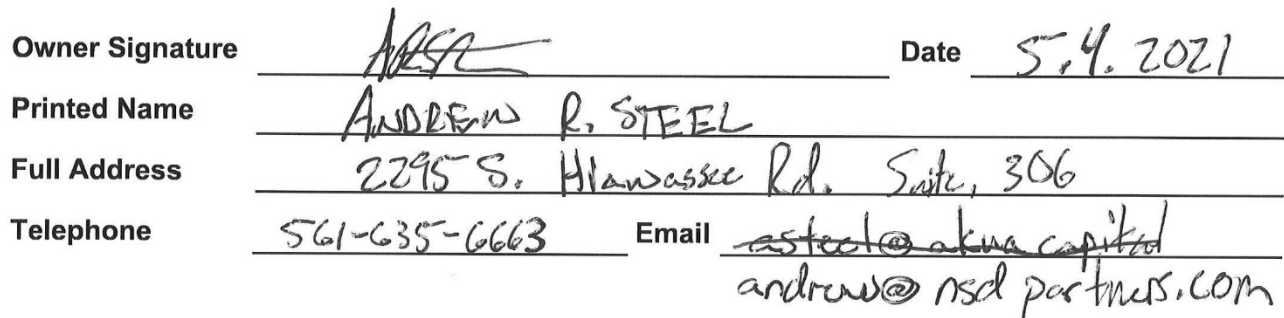 Owner Signature Date 5.4.2021
Printed Name ANDREW R. STEEL
Full Address 2295 S. Hiawassee Rd. Suite, 306
Telephone 561-635-6663 Email asteel@akua capital
andrew@nsdpartners.com